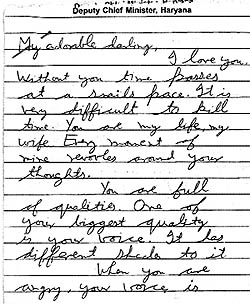 Deputy Chief Minister, Haryana
My adorable darling,
I love you.
Without you time passes
at a snails pace. It is
very difficult to kill
time. You are my life, my
wife Every moment of
mine revolves around your
thoughts.
You are full
of qualities. One of
your biggest quality
is your voice. It has
different shades to it
When you are
angry, your voice is